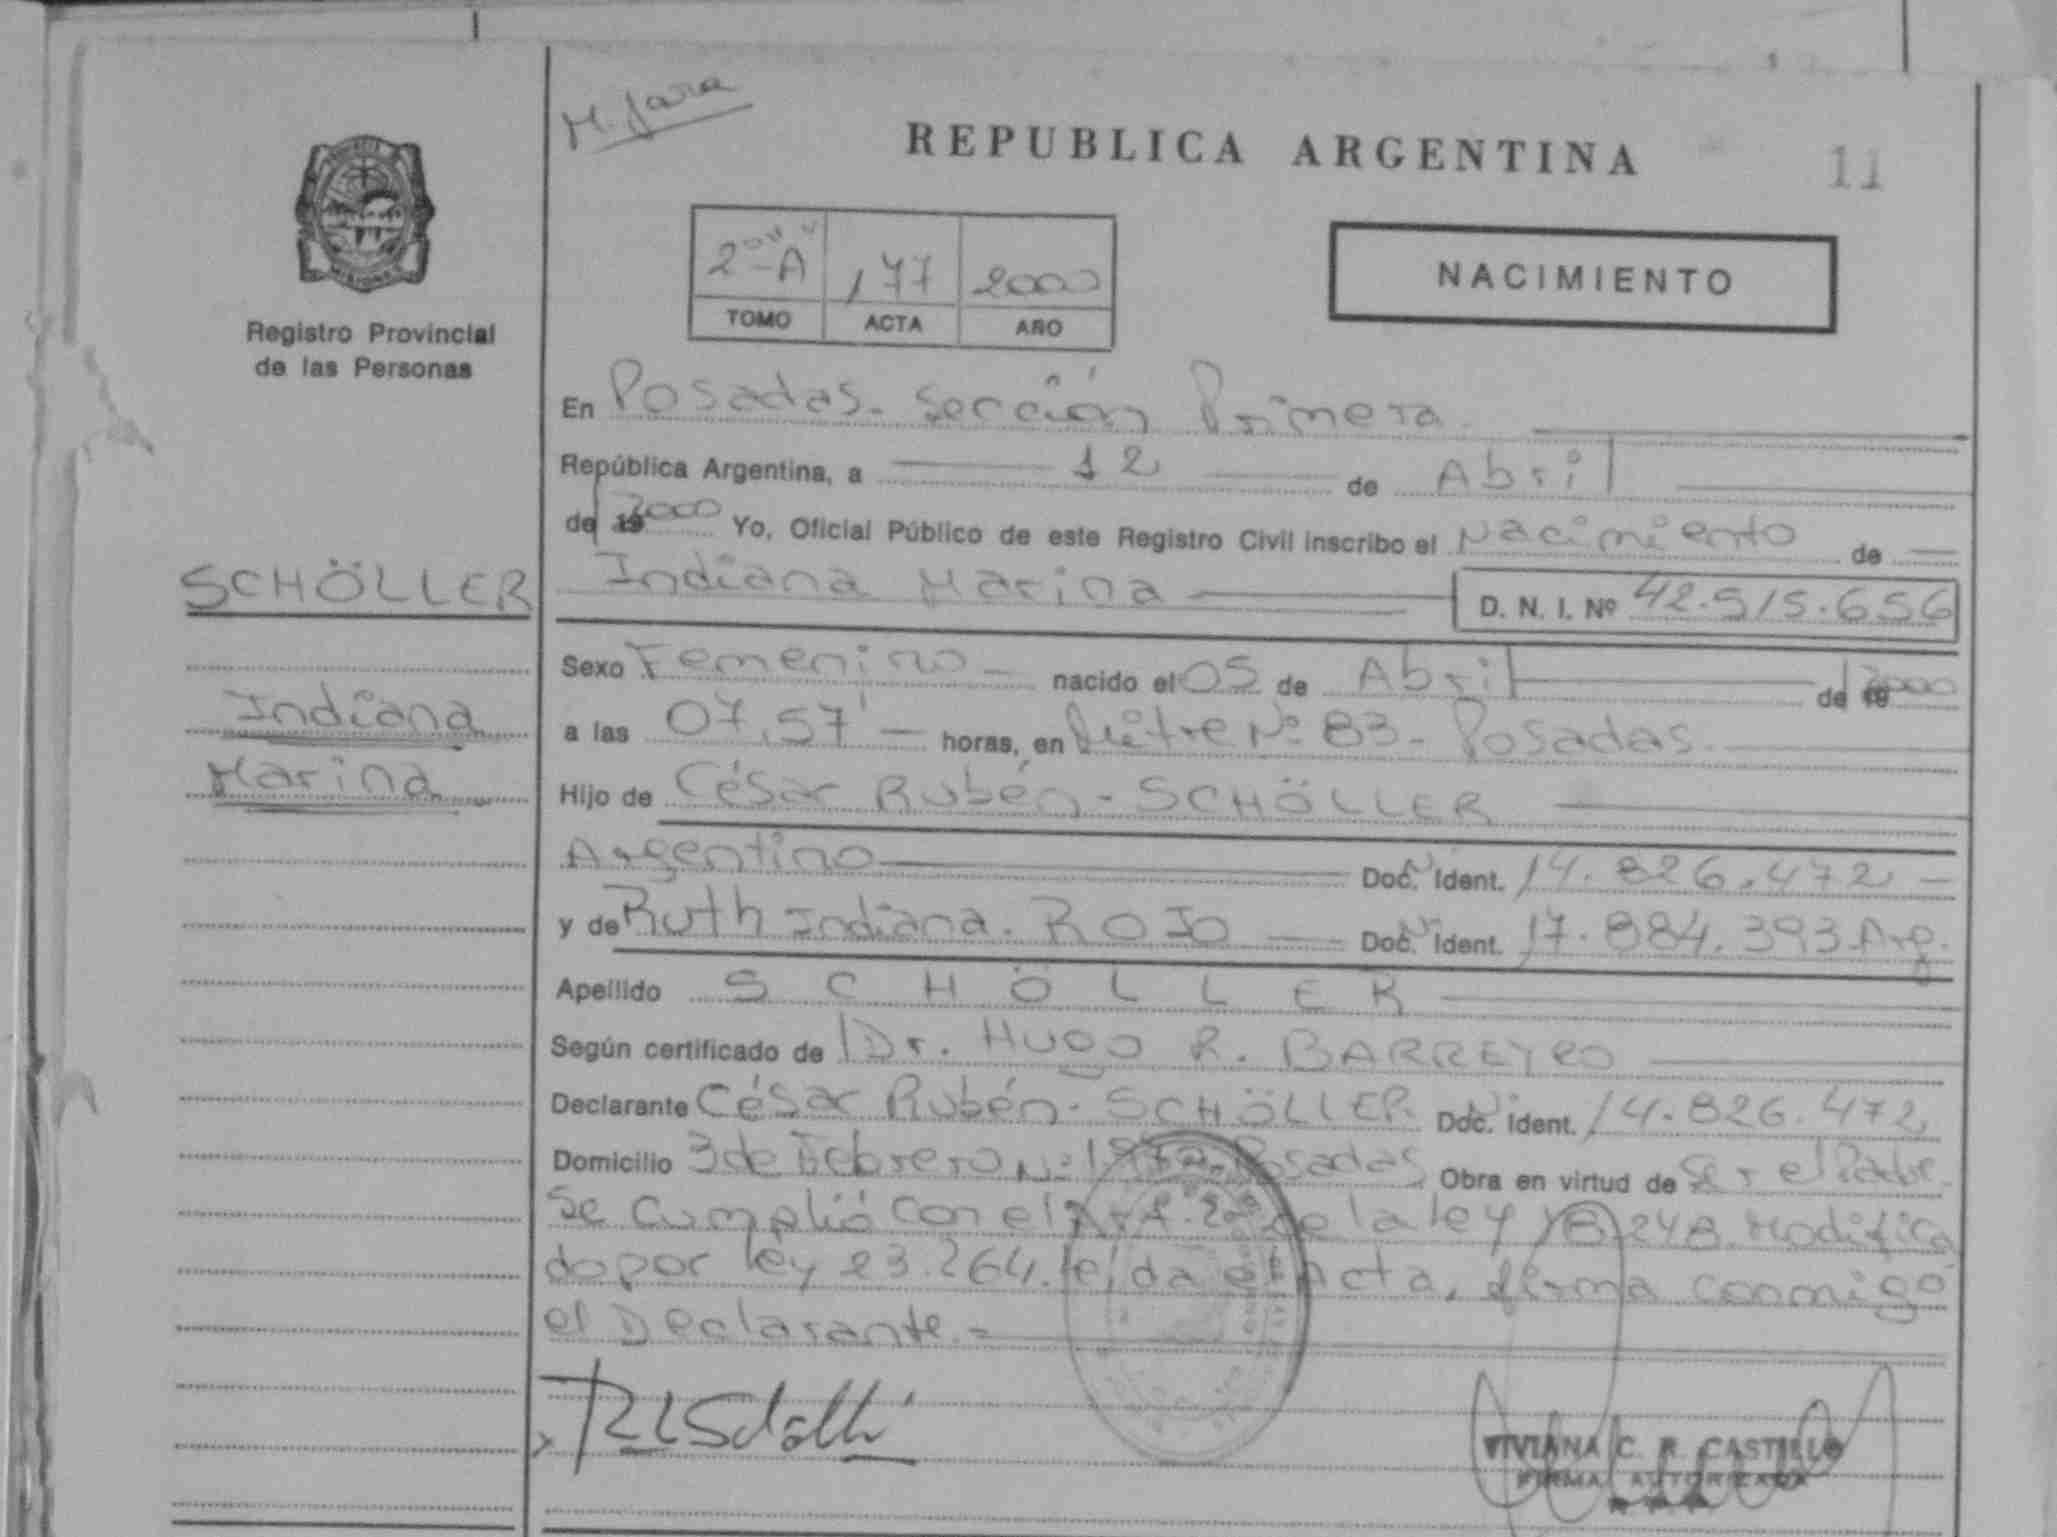 M. Jara
REPUBLICA ARGENTINA
11
2º-A 177 2000
TOMO ACTA AÑO
NACIMIENTO
Registro Provincial
de las Personas
En Posadas. Sección Primera.
República Argentina, a 12 de Abril
de 19 2000 Yo, Oficial Público de este Registro Civil inscribo el Nacimiento de
SCHÖLLER
Indiana Marina D. N. I. Nº 42.515.656
Sexo Femenino nacido el 05 de Abril de 19 2000
Indiana
a las 07,57' horas, en Mitre Nº 83 - Posadas.
Marina
Hijo de César Rubén - SCHÖLLER
Argentino Doc. Ident. 14.826.472
y de Ruth Indiana. ROJO Doc. Ident. 17.884.393 Arg.
Apellido SCHÖLLER
Según certificado de Dr. Hugo R. BARREYRO
Declarante César Rubén - SCHÖLLER Doc. Ident. 14.826.472
Domicilio 3 de Febrero Nº Posadas Obra en virtud de Ser el Padre.
Se cumplió con el Art. de la ley 18.248. Modifica
do por ley 23.264. leída el Acta, firma conmigo
el Declarante.=
VIVIANA C. R. CASTILLO
FIRMA AUTORIZADA